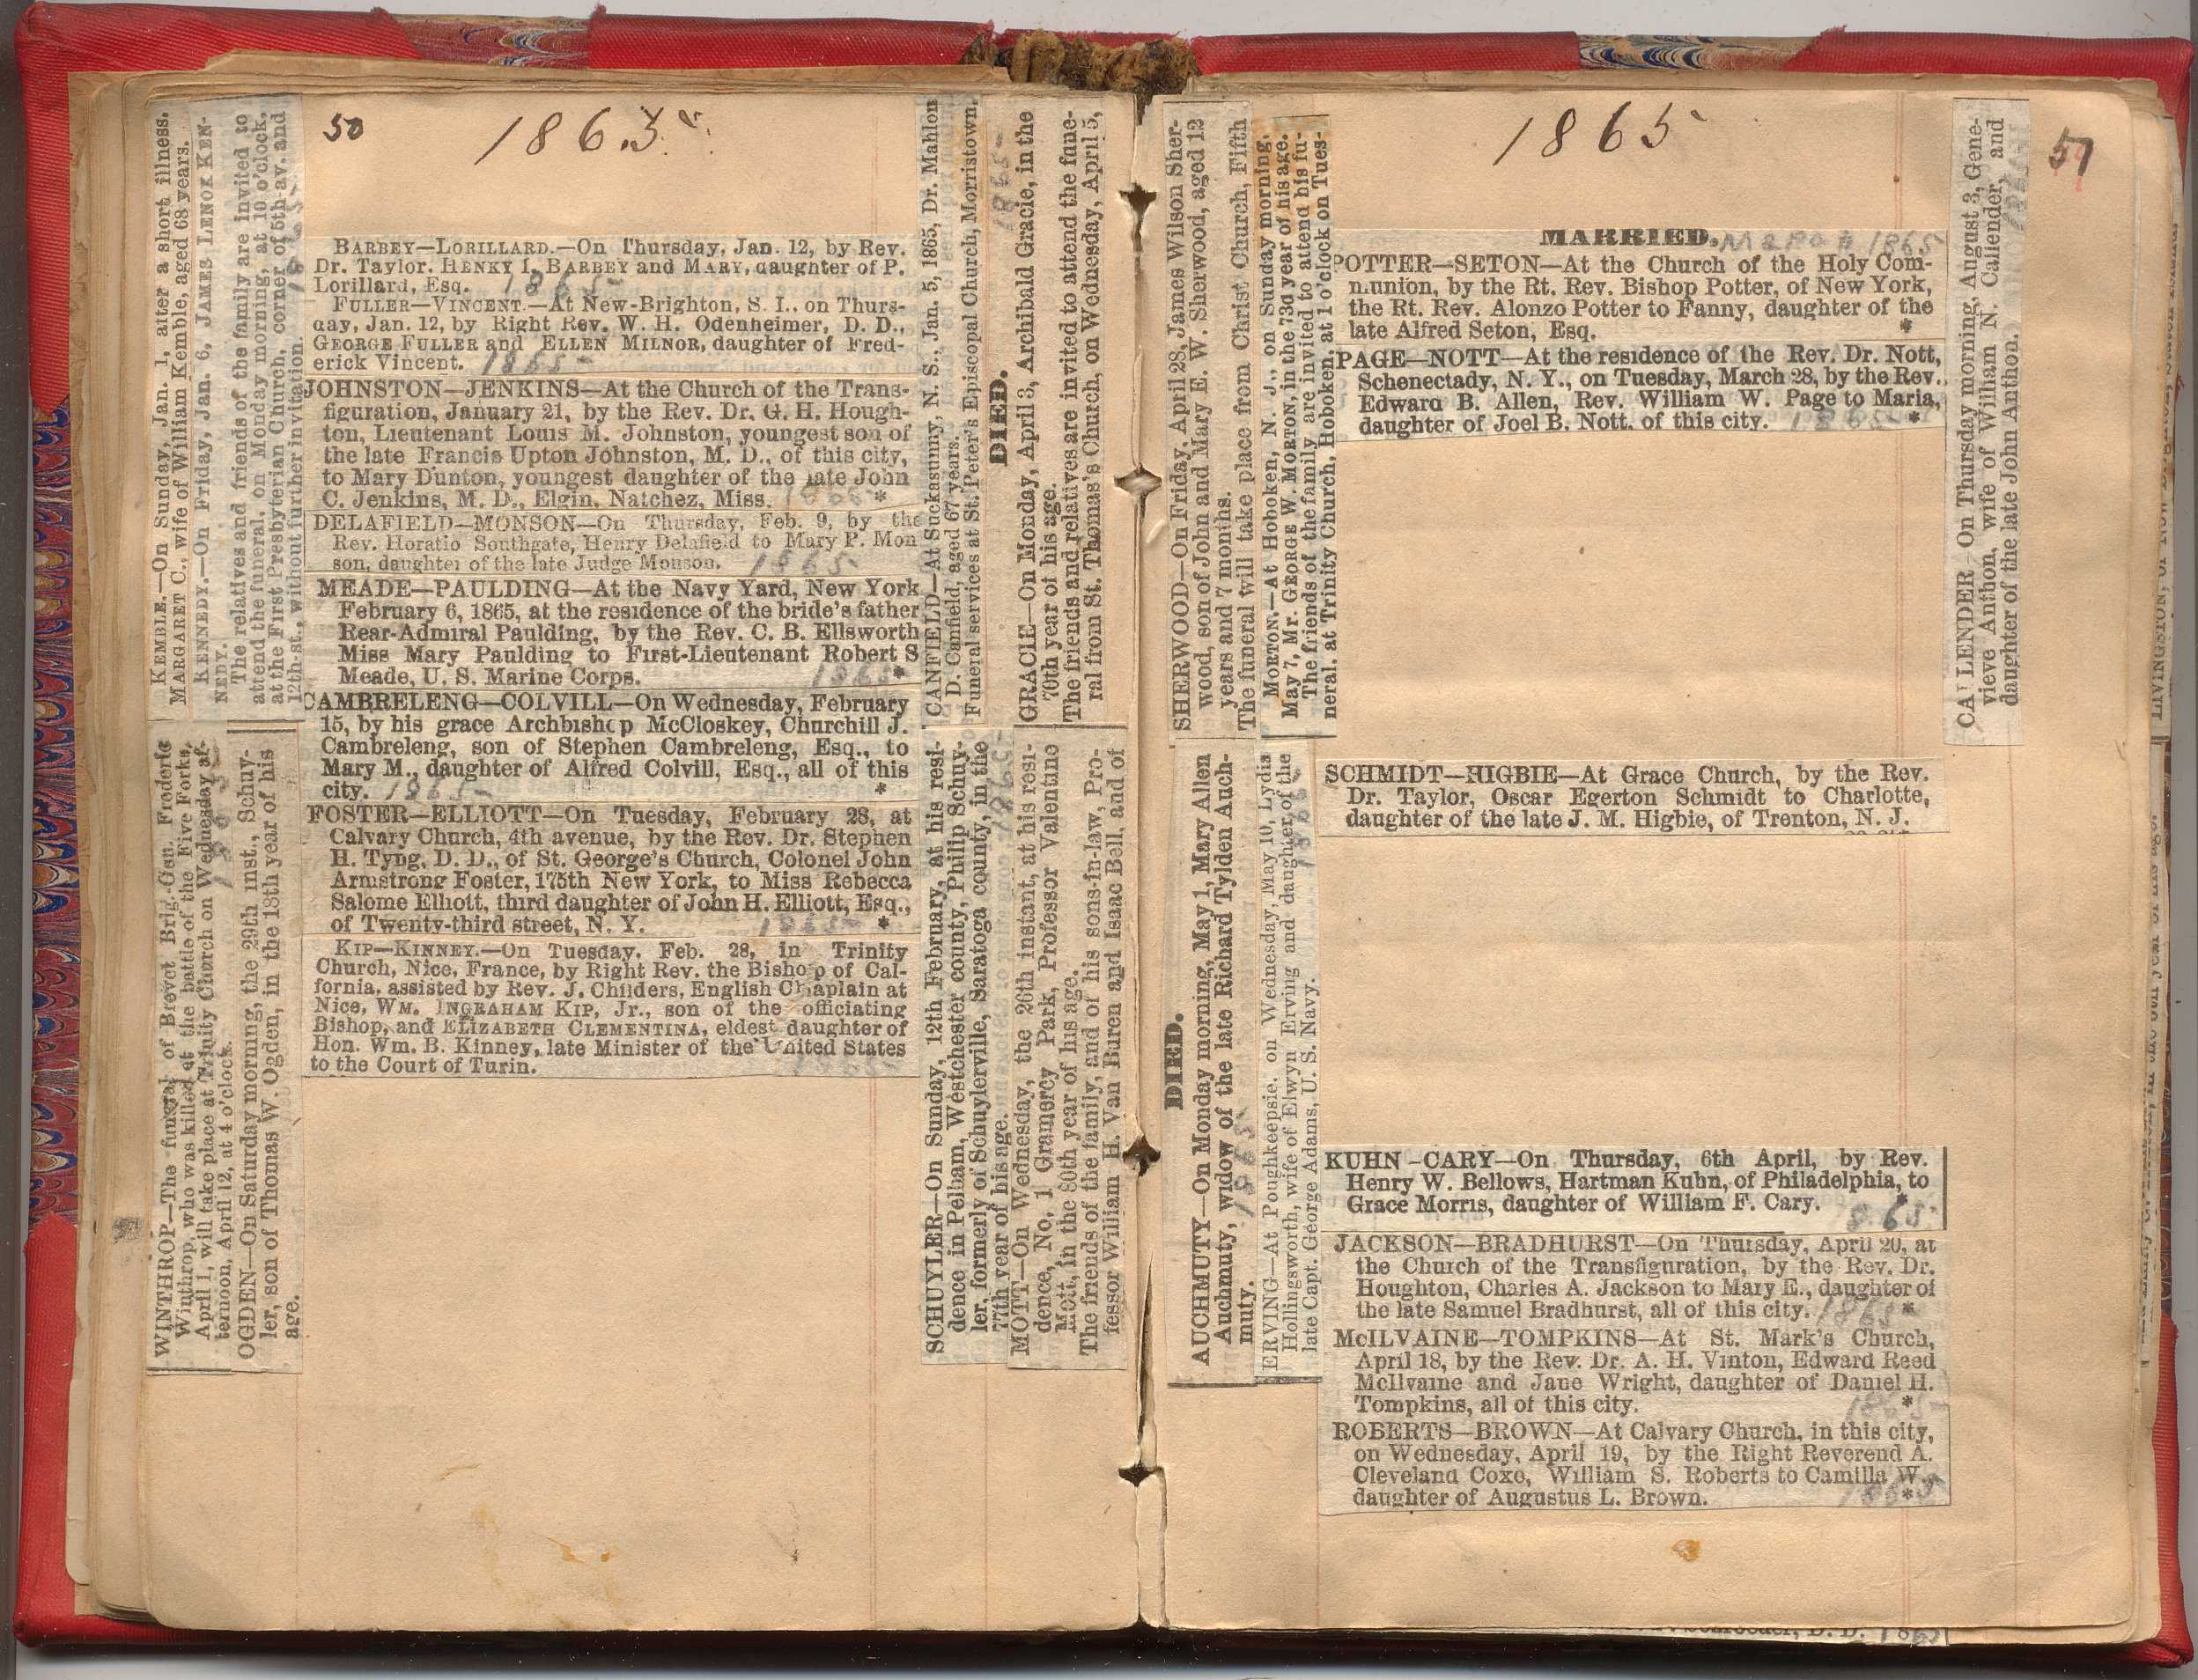 50
1865
KEMBLE.—On Sunday, Jan. 1, after a short illness.
MARGARET C., wife of William Kemble, aged 68 years.
KENNEDY.—On Friday, Jan. 6, JAMES LENOX KEN-
NEDY.
The relatives and friends of the family are invited to
attend the funeral, on Monday morning, at 10 o'clock,
at the First Presbyterian Church, corner of 5th-av. and
12th-st., without further invitation.
WINTHROP—The funeral of Brevet Brig.-Gen. Frederic
Winthrop, who was killed at the battle of the Five Forks,
April 1, will take place at Trinity Church on Wednesday af-
ternoon, April 12, at 4 o'clock.
OGDEN—On Saturday morning, the 29th inst., Schuy-
ler, son of Thomas W. Ogden, in the 18th year of his
age.
BARBEY—LORILLARD.—On Thursday, Jan. 12, by Rev.
Dr. Taylor, HENRY I. BARBEY and MARY, daughter of P.
Lorillard, Esq. 1865
FULLER—VINCENT.—At New-Brighton, S. I., on Thurs-
day, Jan. 12, by Right Rev. W. H. Odenheimer, D. D.,
GEORGE FULLER and ELLEN MILNOR, daughter of Fred-
erick Vincent. 1865
JOHNSTON—JENKINS—At the Church of the Trans-
figuration, January 21, by the Rev. Dr. G. H. Hough-
ton, Lieutenant Louis M. Johnston, youngest son of
the late Francis Upton Johnston, M. D., of this city,
to Mary Dunton, youngest daughter of the late John
C. Jenkins, M. D., Elgin, Natchez, Miss. 1865 *
DELAFIELD—MONSON—On Thursday, Feb. 9, by the
Rev. Horatio Southgate, Henry Delafield to Mary P. Mon
son, daughter of the late Judge Monson. 1865
MEADE—PAULDING—At the Navy Yard, New York
February 6, 1865, at the residence of the bride's father
Rear-Admiral Paulding, by the Rev. C. B. Ellsworth
Miss Mary Paulding to First-Lieutenant Robert S
Meade, U. S. Marine Corps. 1865 *
CAMBRELENG—COLVILL—On Wednesday, February
15, by his grace Archbishop McCloskey, Churchill J.
Cambreleng, son of Stephen Cambreleng, Esq., to
Mary M., daughter of Alfred Colvill, Esq., all of this
city. 1865 *
FOSTER—ELLIOTT—On Tuesday, February 28, at
Calvary Church, 4th avenue, by the Rev. Dr. Stephen
H. Tyng, D. D., of St. George's Church, Colonel John
Armstrong Foster, 175th New York, to Miss Rebecca
Salome Elliott, third daughter of John H. Elliott, Esq.,
of Twenty-third street, N. Y. 1865 *
KIP—KINNEY.—On Tuesday, Feb. 28, in Trinity
Church, Nice, France, by Right Rev. the Bishop of Cal-
fornia, assisted by Rev. J. Childers, English Chaplain at
Nice, WM. INGRAHAM KIP, Jr., son of the officiating
Bishop, and ELIZABETH CLEMENTINA, eldest daughter of
Hon. Wm. B. Kinney, late Minister of the United States
to the Court of Turin. 1865
CANFIELD—At Suckasunny, N. S., Jan. 5, 1865, Dr. Mahlon
D. Canfield, aged 67 years.
Funeral services at St. Peter's Episcopal Church, Morristown,
DIED. 1865
GRACIE—On Monday, April 3, Archibald Gracie, in the
70th year of his age.
The friends and relatives are invited to attend the fune-
ral from St. Thomas's Church, on Wednesday, April 5,
SCHUYLER—On Sunday, 12th February, at his resi-
dence in Pelham, Westchester county, Philip Schuy-
ler, formerly of Schuylerville, Saratoga county, in the
77th year of his age. 1865
MOTT—On Wednesday, the 26th instant, at his resi-
dence, No. 1 Gramercy Park, Professor Valentine
Mott, in the 80th year of his age.
The friends of the family, and of his sons-in-law, Pro-
fessor William H. Van Buren and Isaac Bell, and of
1865
51
SHERWOOD—On Friday, April 28, James Wilson Sher-
wood, son of John and Mary E. W. Sherwood, aged 12
years and 7 months.
The funeral will take place from Christ Church, Fifth
MORTON.—At Hoboken, N. J., on Sunday morning,
May 7, Mr. GEORGE W. MORTON, in the 73d year of his age.
The friends of the family are invited to attend his fu-
neral, at Trinity Church, Hoboken, at 1 o'clock on Tues-
DIED.
AUCHMUTY—On Monday morning, May 1, Mary Allen
Auchmuty, widow of the late Richard Tylden Auch-
muty. 1865
ERVING—At Poughkeepsie, on Wednesday, May 10, Lydia
Hollingsworth, wife of Elwyn Erving and daughter of the
late Capt. George Adams, U. S. Navy. 1865
MARRIED. March 1865
POTTER—SETON—At the Church of the Holy Com-
munion, by the Rt. Rev. Bishop Potter, of New York,
the Rt. Rev. Alonzo Potter to Fanny, daughter of the
late Alfred Seton, Esq. *
PAGE—NOTT—At the residence of the Rev. Dr. Nott,
Schenectady, N. Y., on Tuesday, March 28, by the Rev.
Edward B. Allen, Rev. William W. Page to Maria,
daughter of Joel B. Nott, of this city. 1865 *
SCHMIDT—HIGBIE—At Grace Church, by the Rev.
Dr. Taylor, Oscar Egerton Schmidt to Charlotte,
daughter of the late J. M. Higbie, of Trenton, N. J.
KUHN—CARY—On Thursday, 6th April, by Rev.
Henry W. Bellows, Hartman Kuhn, of Philadelphia, to
Grace Morris, daughter of William F. Cary. *
1865
JACKSON—BRADHURST—On Thursday, April 20, at
the Church of the Transfiguration, by the Rev. Dr.
Houghton, Charles A. Jackson to Mary E., daughter of
the late Samuel Bradhurst, all of this city. 1865 *
McILVAINE—TOMPKINS—At St. Mark's Church,
April 18, by the Rev. Dr. A. H. Vinton, Edward Reed
McIlvaine and Jane Wright, daughter of Daniel H.
Tompkins, all of this city. 1865 *
ROBERTS—BROWN—At Calvary Church, in this city,
on Wednesday, April 19, by the Right Reverend A.
Cleveland Coxe, William S. Roberts to Camilla W.
daughter of Augustus L. Brown. 1865 *
CALLENDER—On Thursday morning, August 3, Gene-
vieve Anthon, wife of William N. Callender, and
daughter of the late John Anthon.